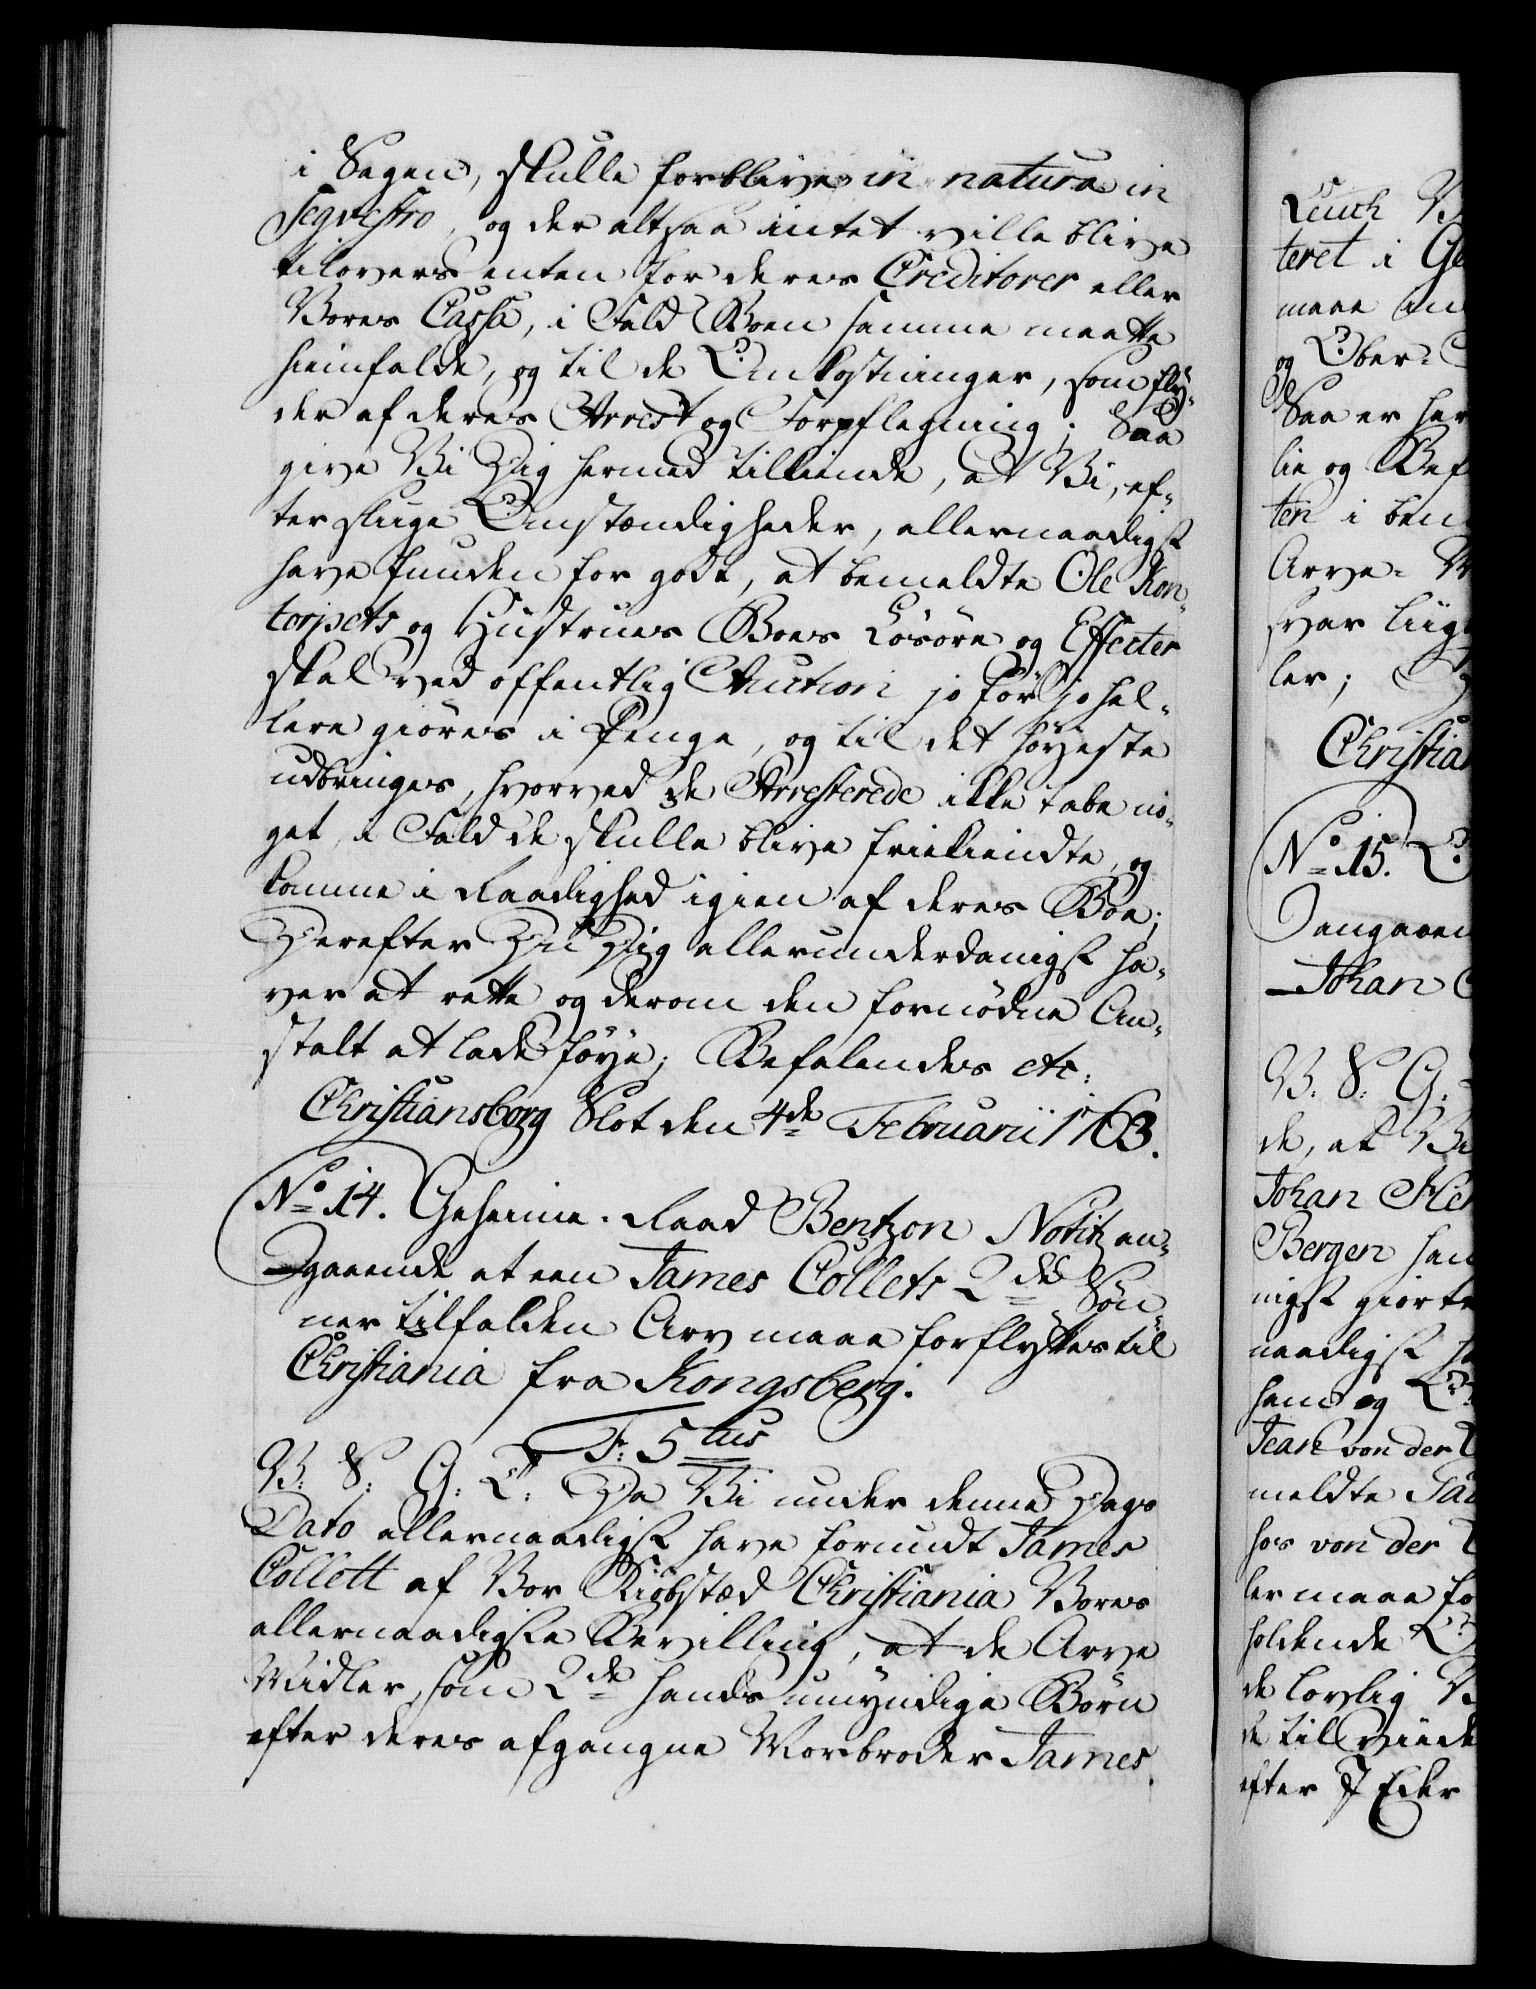 i Sagen, skulle forblive in natura in
Seqvestro, og der altsaa intet ville blive
tilovers enten for deres Creditorer eller
Vores Cassa, i Fald Boen samme maatte
hiemfalde, og til de Omkostninger, som fly-
der af deres Arrest og Forpflegning; Saa
give Vi Dig hermed tilkiende, at Vi, ef-
ter slige Omstændigheder, allernaadigst
have funden for godt, at bemeldte Ole Kon-
torjsets og Hustrues Boes Løsøre og Effecter
skal ved offentlig Auction jo før jo hel-
lere giøres i Penge, og til det høyeste
udbringes, hvorved de Arresterede ikke tabe no-
get, i Fald de skulle blive friekiendte, og
komme i Raadighed igien af deres Boe;
Derefter Du Dig allerunderdanigst ha-
ver at rette og derom den fornødne An-
stalt at lade føye; Befalendes etc:
Christiansborg Slot den 4de Februarii 1763.
No 14. Geheime-Raad Bentzon Notitz an-
gaaende at een James Collets 2de Søn-
ner tilfalden Arv maae forflyttes til
Christiania fra Kongsberg.
F: 5tus
V: S: G: T: Da Vi under denne Dags
Dato allernaadigst have forundt James
Collett af Vor Kiøbstæd Christiania Vores
allernaadigste Bevilling, at de Arve
Midler, som 2de hands umyndige Børn
efter deres afgangne Morbroder James
Leuch V
teret i Ge
maae an
og Ober-C
Saa er her
lie og Bef
ten i bem
Arve-M
svar liig
ler;
Christian
No 15.
Dangaaen
Johan C
V: S: G:
de, at Vi
Johan Her
Bergen han
nigst giørte
naadigst ha
ham og
Jean von der
meldte Sa
hos von der
ler maae fo
holdende
de lovlig V
de til viide
efter J Eder